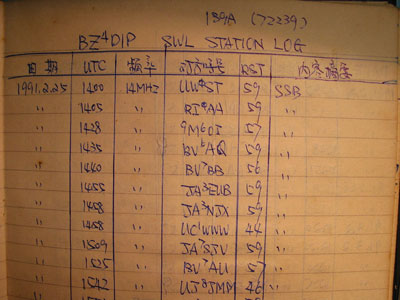 139A (72239)
BZ4DIP SWL STATION LOG
日期 UTC 频率 对方呼号 RST 内容摘要
1991.2.25 1400 14MHZ UW0ST 59 SSB
〃 1405 〃 59 〃
〃 1428 〃 9M6OI 57 〃
〃 1435 〃 BV6AQ 59 〃
〃 1440 〃 BV7BB 56 〃
〃 1455 〃 JA3EUB 59 〃
〃 1458 〃 JA3NJX 59 〃
〃 1458 〃 UC1WWW 44 〃
〃 1509 〃 JA7SJV 59 〃
〃 1525 〃 BV7AU 57 〃
〃 1542 〃 UJ8JMM 46 〃